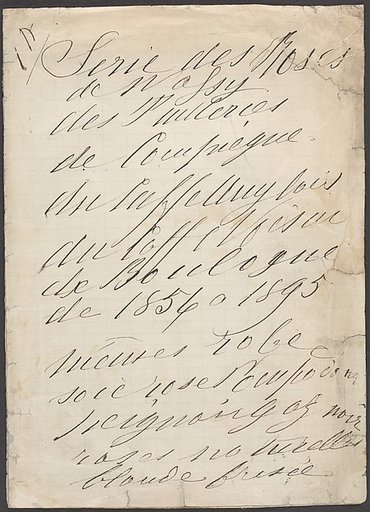 Serie des Roses
de Passy
des Tuileries
de Compiègne
du Caffe
du Caffe
de Boulogne
de 1856 a 1895
mêmes robe
soie rose Pompadour
peignoir gaz noir
roses naturelles
blonde frisée